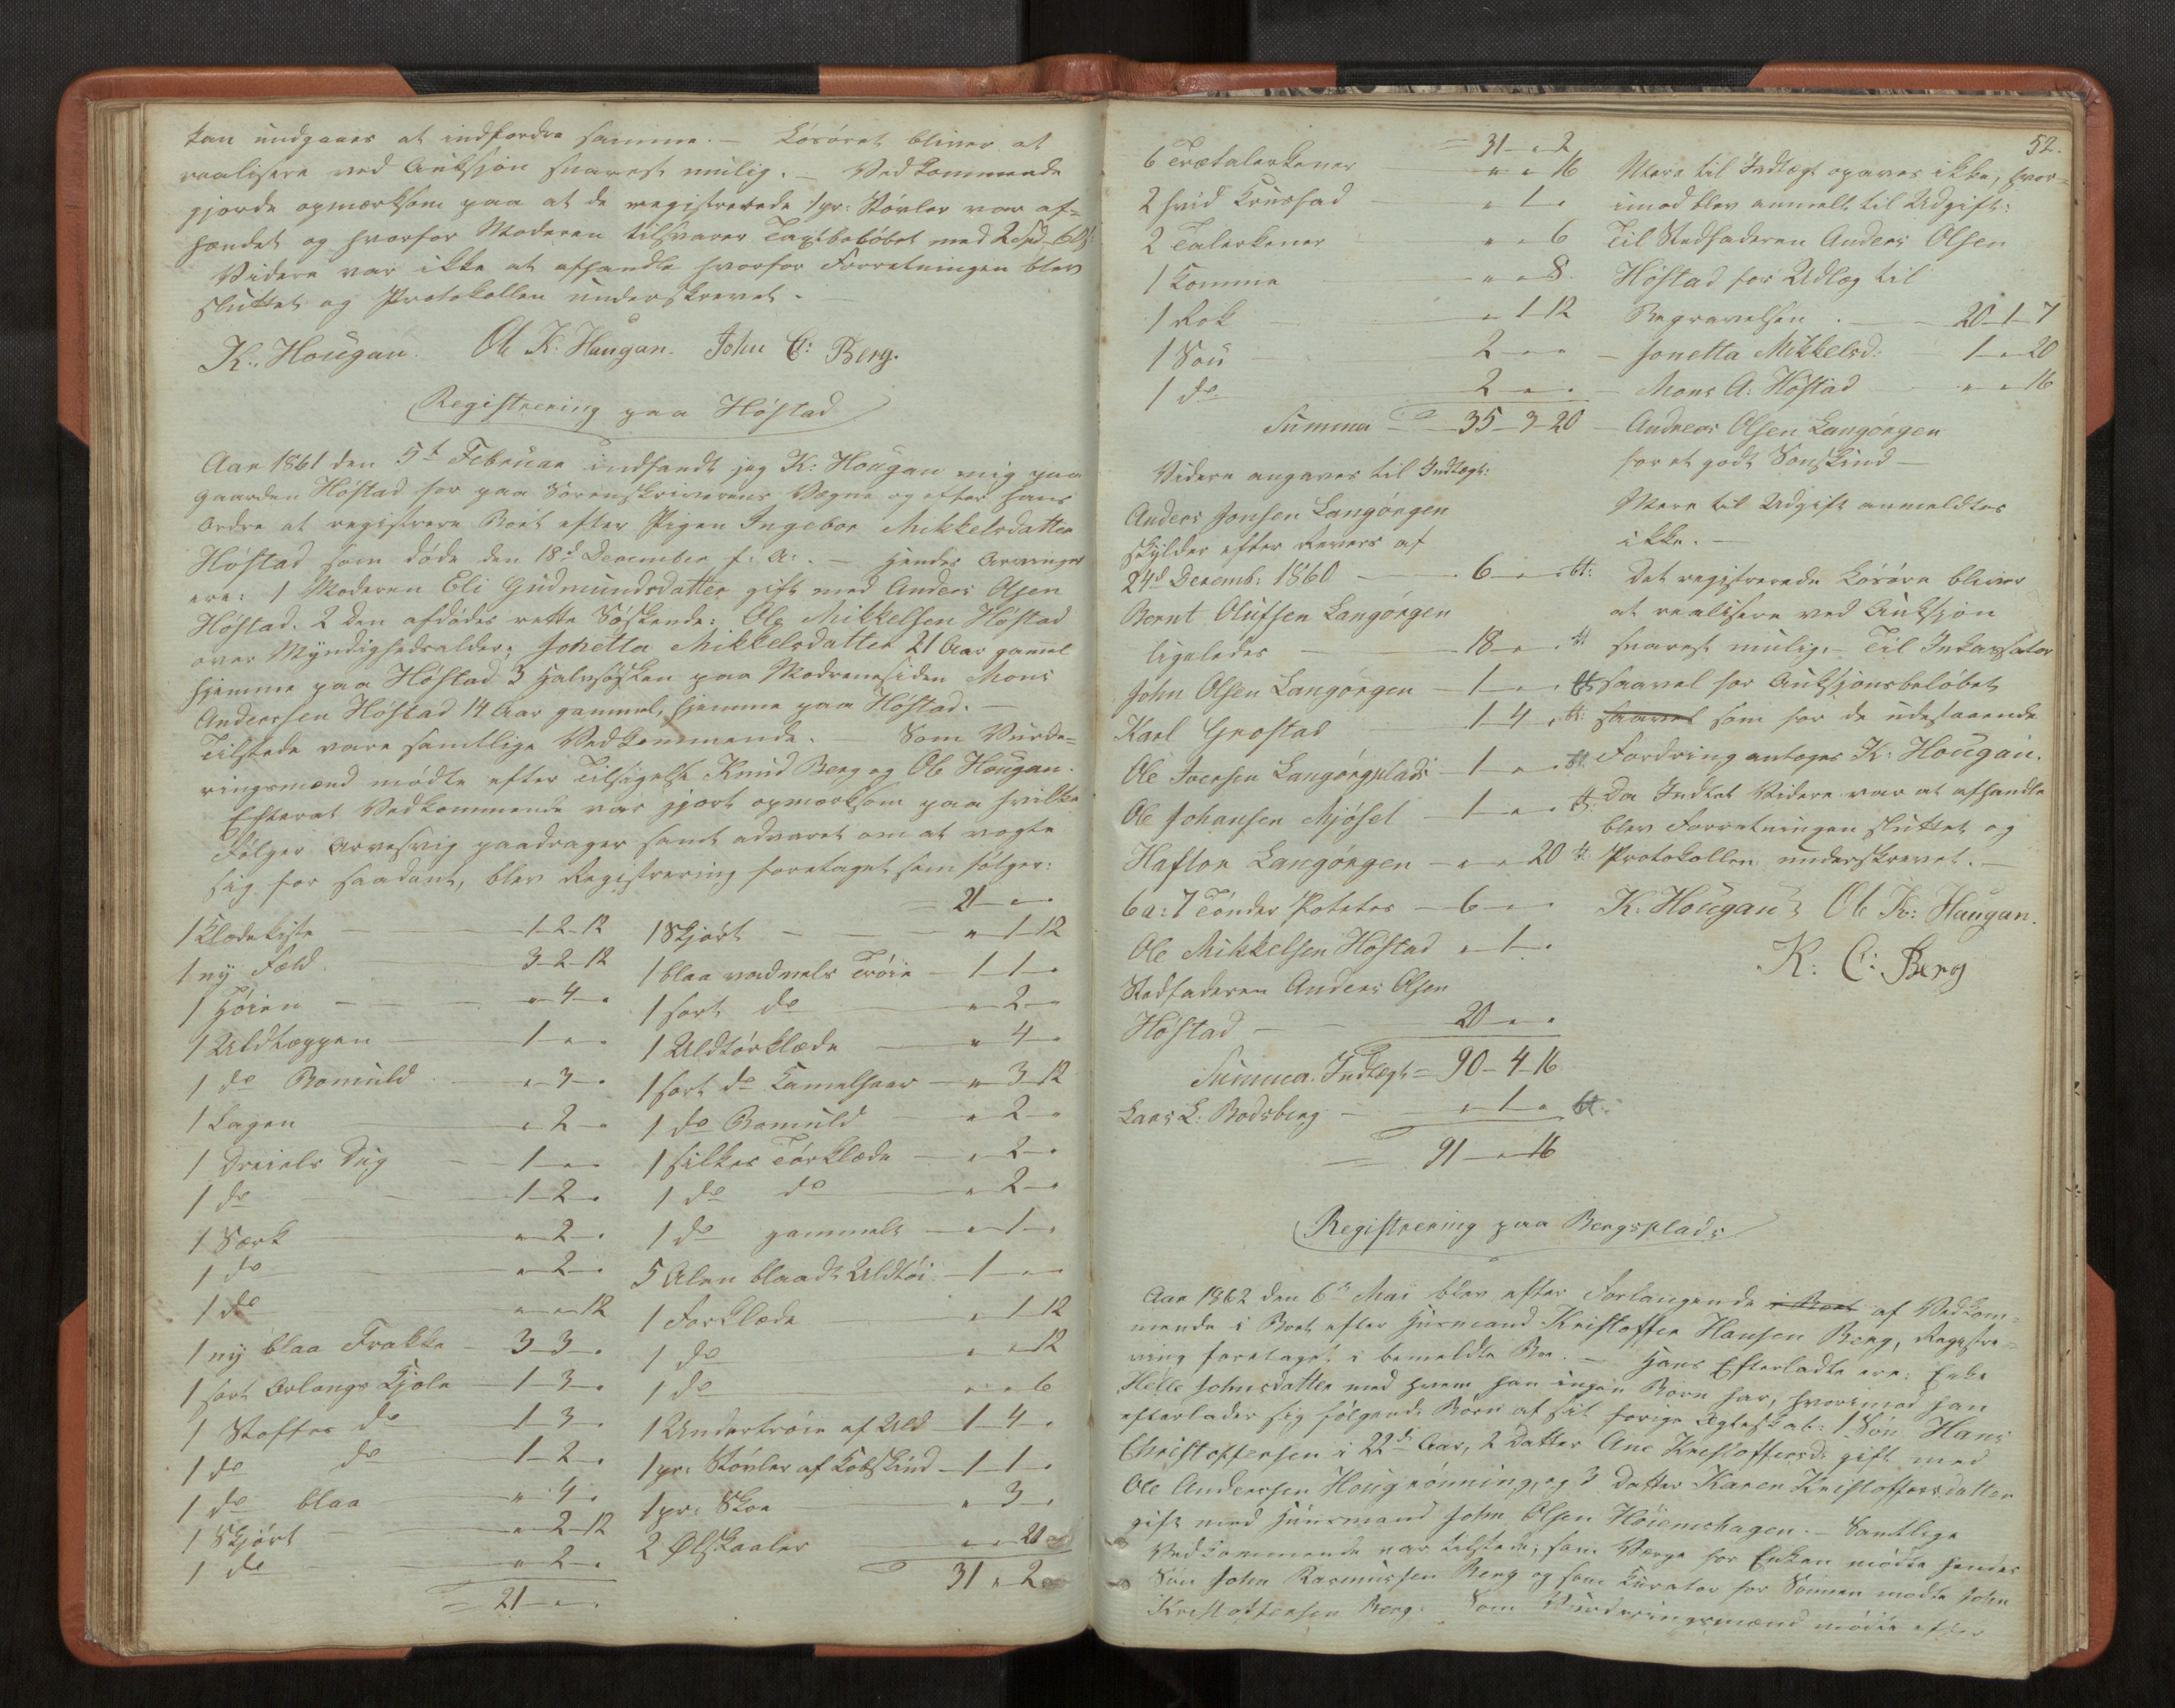 kan undgaaes at indfordre samme. – Løsøret bliver at
realisere ved Auksjon snarest mulig. – Vedkommende
gjorde opmærksom paa at de registrerede 1 pr: Støvler var af-
hændet og hvorfor Moderen tilsvarer Taxtbeløbet med 2 Spd
Videre var ikke at afhandle hvorfor Forretningen blev
sluttet og Protokollen underskrevet.
K. Hougan. Ole K. Haugan. John C: Berg.
Registrering paa Høstad
Aar 1861 den 5t Februar indfandt jeg K: Hougan mig paa
Gaarden Høstad for paa Sorenskriverens Vegne og efter hans
Ordre at registrere Boet efter Pigen Ingebor Mikkelsdatter
Høstad som døde den 18d December f: A: – Hendes Arvinger
ere: 1 Moderen Eli Gudmundsdatter gift med Anders Olsen
Høstad. 2 den afdødes rette Søskende: Ole Mikkelsen Høstad
over Myndighedsalder, Jonetta Mikkelsdatter 21 Aar gammel
hjemme paa Høstad 3 Halvsøsken paa Modrenesiden Mons
Anderssen Høstad 14 Aar gammel, hjemme paa Høstad. –
Tilstede vare samtlige Vedkommende. – Som Vurde-
ringsmænd mødte efter Tilsigelse Knud Berg og Ole Hougan.
Efterat Vedkommende var gjort opmærksom paa hvilke
Følger Arvesvig paadrager samt advaret om at vogte
sig for saadant, blev Registrering foretaget som følger:
1 Klædekiste – 1-2-12
1 ny Fæld – 3-2-12
1 Høien – „-4-„
1 Uldteppen – 1-„-„
1 do Bomuld – „-3-„
1 Lagen – „-2-„
1 Dreiels Dug – 1-„-„
1 do – 1-2-„
1 Særk – „-2-„
1 do – „-2-„
1 do – „-„-12
1 ny blaa Frakke – 3-3-„
1 sort Orlangs Kjole – 1-3-„
1 Stoffes do – 1-3-„
1 do do – 1-2-„
1 do blaa – „-4-„
1 Skjørt – „-2-12
1 do – „-2-„
= 21-„-„
= 21-„-„
1 Skjørt – „-1-12
1 blaa vadmels Trøie – 1-1-„
1 sort do – „-2-„
1 Uldtørklæde – „-4-„
1 sort do Kamelhaar – „-3-12
1 do Bomuld – „-2-„
1 silkes Tørklæde – „-2-„
1 do do – „-2-„
1 do gammelt – „-1-„
5 Alen blaadt Uldtøi – 1-„-„
1 Forklæde – „-1-12
1 do – „-„-12
1 do – „-„-6
1 Undertrøie af Uld – 1-4-„
1 pr: Støvler af Kobskind – 1-1-„
1 pr: Skoe – „-3-„
2 Ølskaaler – „-„-20
31-„-2
52.
= 31-„-2
6 Trætalerkener – „-„-16
2 hvid Krusfad – „-1-„
2 Talerkener – „-„-6
1 Komme – „-„-8
1 Rok – „-1-12
1 Sou – 2-„-„
1 do – 2-„-„
Summa = 35-3-20
Videre angaves til Indtægt:
Anders Jonsen Langørgen
skylder efter Revers af
24d Decemb: 1860 – 6-„-„ bt:
Bernt Olufsen Langørgen
ligeledes – 18-„-„ bt
John Olsen Langørgen – 1-„-„ bt
Karl Grostad – 1-4-„ bt:
Ole Iversen Langørgplads – 1-„-„ bt:
Ole Johansen Mjøsel – 1-„-„ bt:
Haftor Langørgen – „-„-20 bt
6 a: 7 Tønder Poteter – 6-„-„
Ole Mikkelsen Høstad „-1-„
Stedfaderen Anders Olsen
Høstad – 20-„-„
Summa Indtægt = 90-4-16
Lars L: Bodsberg – „-1-„ bt:
= 91-„-16
Mere til Indtægt opgaves ikke, hvor-
imod blev anmelt til Udgift:
Til Stedfaderen Anders Olsen
Høstad for Udlæg til
Begravelsen – 20-1-7
– Jonetta Mikkelsd: – 1-„-20
– Mons A: Høstad – „-„-16
– Andreas Olsen Langørgen
for et godt Souskind –
Mere til Udgift anmeldtes
ikke. –
Det registrerede Løsøre bliver
at realisere ved Auksjon
snarest mulig. – Til Inkassator
saavel for Auksjonsbeløbet
saavel som for de udestaaende
Fordring antoges K: Hougan.
Da Indtet Videre var at afhandle
blev Forretningen sluttet og
Protokollen underskrevet. –
K. Hougan Ole K: Haugan.
K: C: Berg
Registrering paa Bergsplads
Aar 1862 den 6te Mai blev efter Forlangende i Boet af Vedkom-
mende i Boet efter Husmand Kristoffer Hansen Berg, Registre-
ring foretaget i bemeldte Bo. – Hans Efterladte ere: Enke
Helle Johnsdatter med hvem han ingen Børn har, hvorimod han
efterlader sig følgende Børn af sit forrige Ægteskab: 1 Søn Hans
Christoffersen i 22de Aar, 2 Datter Ane Kristoffersd: gift med
Ole Anderssen Hougrønning, og 3 Datter Karen Kristoffersdatter
gift med Husmand John Olsen Høiemshagen. – Samtlige
Vedkommende var tilstede, som Verge for Enken mødte hendes
Søn John Rasmussen Berg og som Kurator for Sønnen mødte John
Kristoffersen Berg. Som Vurderingsmænd mødte efter